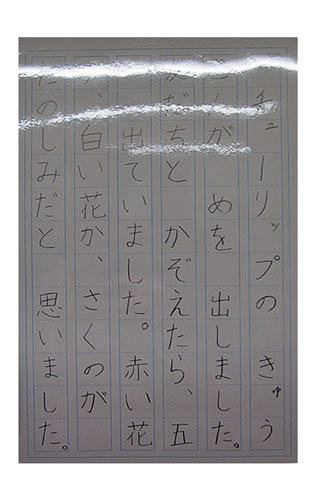 チューリップの きゅう
こんが めを 出しました。
友だちと かぞえたら、五
出ていました。赤い花
か、白い花か、さくのが
たのしみだと 思いました。